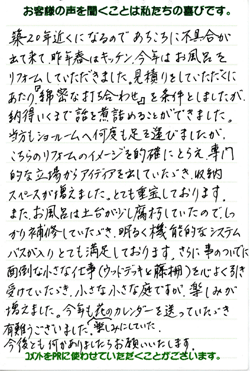 お客様の声を聞くことは私たちの喜びです。
築20年近くになるのであちこちに不具合が
出て来て昨年春はキッチン、今年はお風呂を
リフォームしていただきました。見積りをしていただくに
あたり『綿密な打ち合わせ』を条件としましたが、
納得いくまで話を煮詰めることができました。
当方もショールームへ何度も足を運びましたが、
こちらのリフォームのイメージを的確にとらえ、専門
的な立場からアイディアを出していただき、収納
スペースが増えました。とても重宝しております。
また、お風呂は土台が少し腐朽していたので、しっ
かり補修していただき、明るく機能的なシステム
バスが入りとても満足しております。さらに事のついでに
面倒な小さな仕事(ウッドデッキと藤棚)を心よく引き
受けていただき、小さな小さな庭ですが、楽しみが
増えました。今年も花のカレンダーを送っていただき
有難うございました。楽しみにしていた
今後とも何かありましたらお願いいたします。
コメントをPRに使わせていただくことがございます。